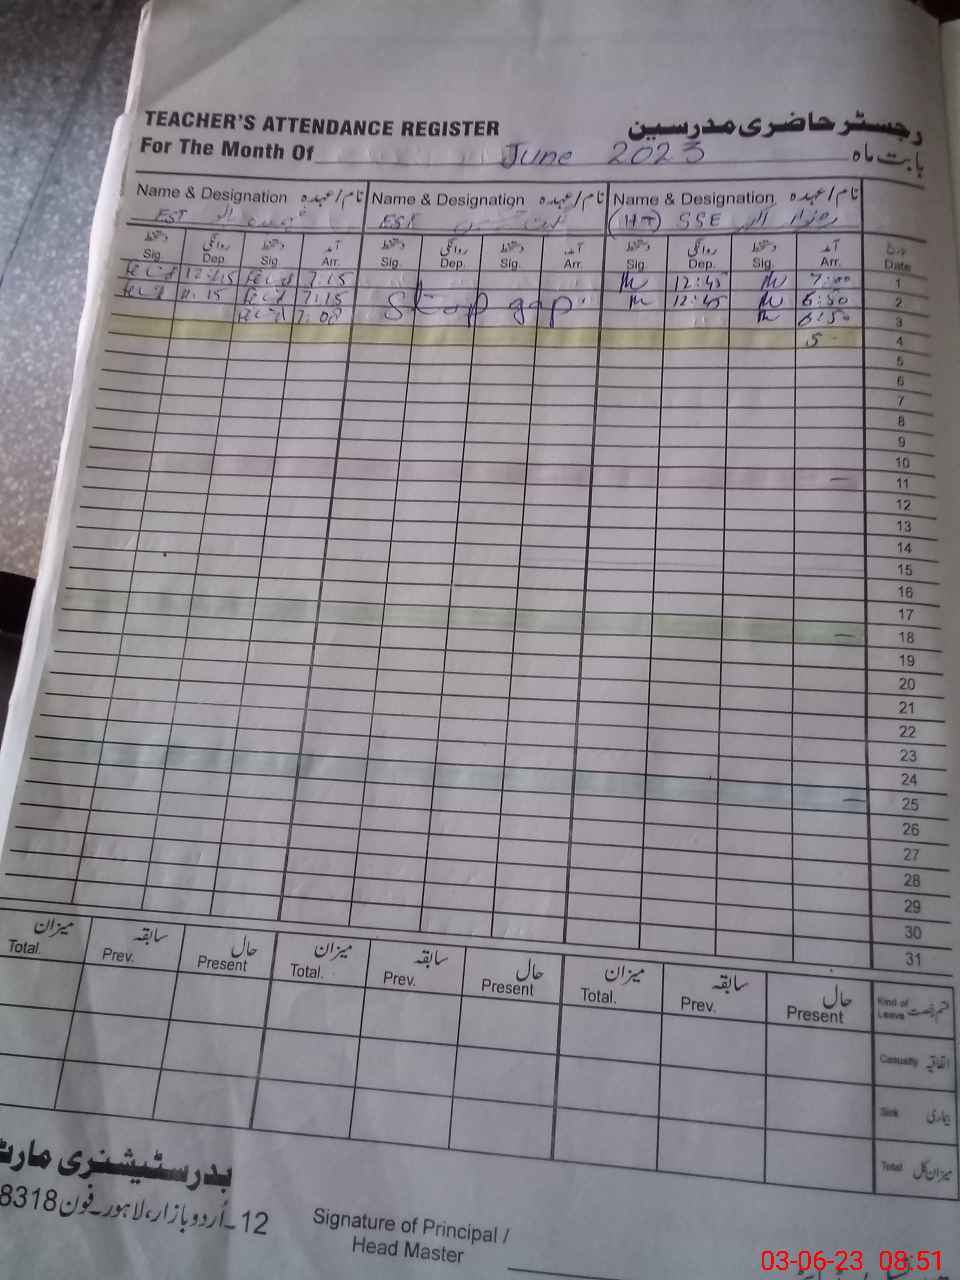 TEACHER'S ATTENDANCE REGISTER رجسٹر حاضری مدرسین
For The Month Of June 2023 بابت ماہ
Name & Designation نام/عہدہ Name & Designation نام/عہدہ Name & Designation نام/عہدہ
EST EST (HT) SSE
دستخط روانگی دستخط آمد دستخط روانگی دستخط آمد دستخط روانگی دستخط آمد
Sig. Dep. Sig. Arr. Sig. Dep. Sig. Arr. Sig. Dep. Sig. Arr. Date
12:15 7:15 12:45 7:00 1
11:15 7:15 Stop gap 12:45 6:50 2
7:08 6:50 3
4
5
6
7
8
9
10
11
12
13
14
15
16
17
18
19
20
21
22
23
24
25
26
27
28
29
30
31
میزان سابقہ حال میزان سابقہ حال میزان سابقہ حال
Total. Prev. Present Total. Prev. Present Total. Prev. Present Kind of Leave قسم رخصت
Casualty اتفاقیہ
Sink بیماری
Total میزان کل
بدر سٹیشنری مارٹ
12-اُردو بازار، لاہور۔ فون 8318
Signature of Principal /
Head Master
03-06-23 08:51